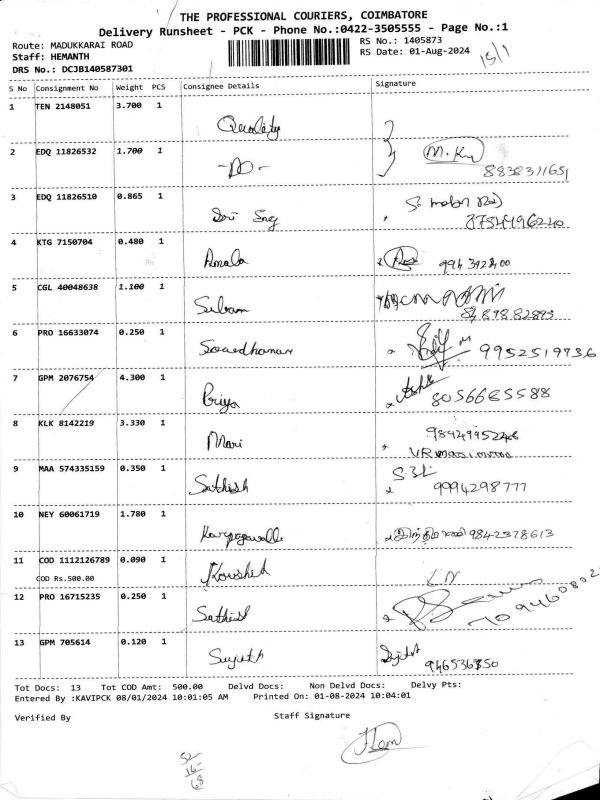 THE PROFESSIONAL COURIERS, COIMBATORE
Delivery Runsheet - PCK - Phone No.:0422-3505555 - Page No.:1
Route: MADUKKARAI ROAD
RS No.: 1405873
Staff: HEMANTH
RS Date: 01-Aug-2024
15/1
DRS No.: DCJB140587301
S No Consignment No Weight PCS Consignee Details Signature
1 TEN 2148051 3.700 1 Quality
2 EDQ 11826532 1.700 1 -Do- M.
8838311651
3 EDQ 11826510 0.865 1 Sri Eng
8754496240
4 KTG 7150704 0.480 1 Amala
5 CGL 40048638 1.100 1
6 PRO 16633074 0.250 1 9952519736
7 GPM 2076754 4.300 1 Priya
8056665588
8 KLK 8142219 3.330 1 Mari
9 MAA 574335159 0.350 1 Sathish
9994298777
10 NEY 60061719 1.780 1 9842378613
11 COD 1112126789 0.090 1 Koushik
COD Rs.500.00
12 PRO 16715235 0.250 1 Sathish
13 GPM 705614 0.120 1 Sujith
Tot Docs: 13 Tot COD Amt: 500.00 Delvd Docs: Non Delvd Docs: Delvy Pts:
Entered By :KAVIPCK 08/01/2024 10:01:05 AM Printed On: 01-08-2024 10:04:01
Verified By Staff Signature
Hem
52
16
68